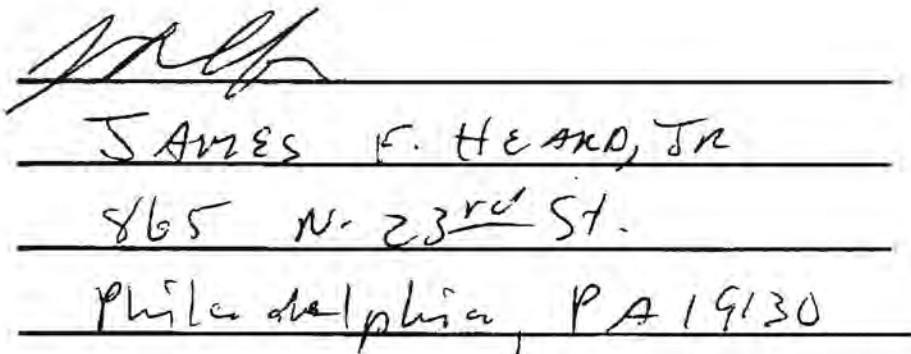 JAMES F. HEARD, JR
865 N. 23rd St.
Philadelphia, PA 19130